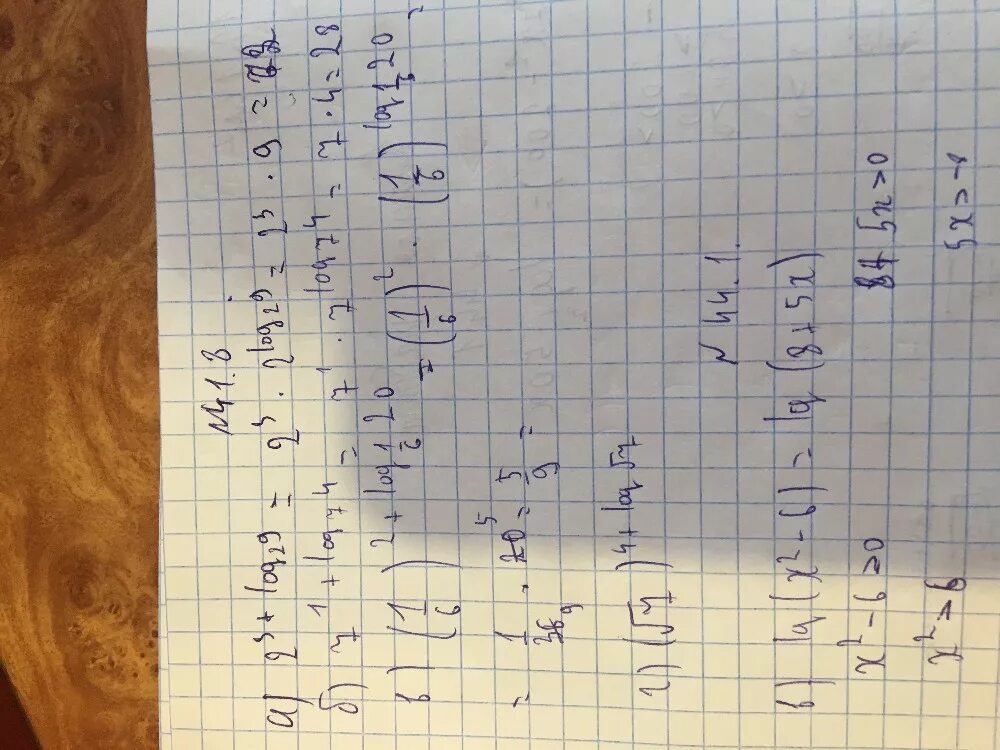 №41.8
а) 2³ + log₂9 = 2³ · 2^log₂9 = 2³ · 9 = 72
б) 7^1 + log₇4 = 7¹ · 7^log₇4 = 7 · 4 = 28
в) (1/6)^2 + log 1/6 20 = (1/6)² · (1/6)^log 1/6 20 =
= 1/36 9 · 20 5 = 5/9 =
г) (√7)^4 + log√7
№ 44.1.
в) lg (x² - 6) = lg (8 + 5x)
x² - 6 > 0 8 + 5x > 0
x² > 6 5x > -8